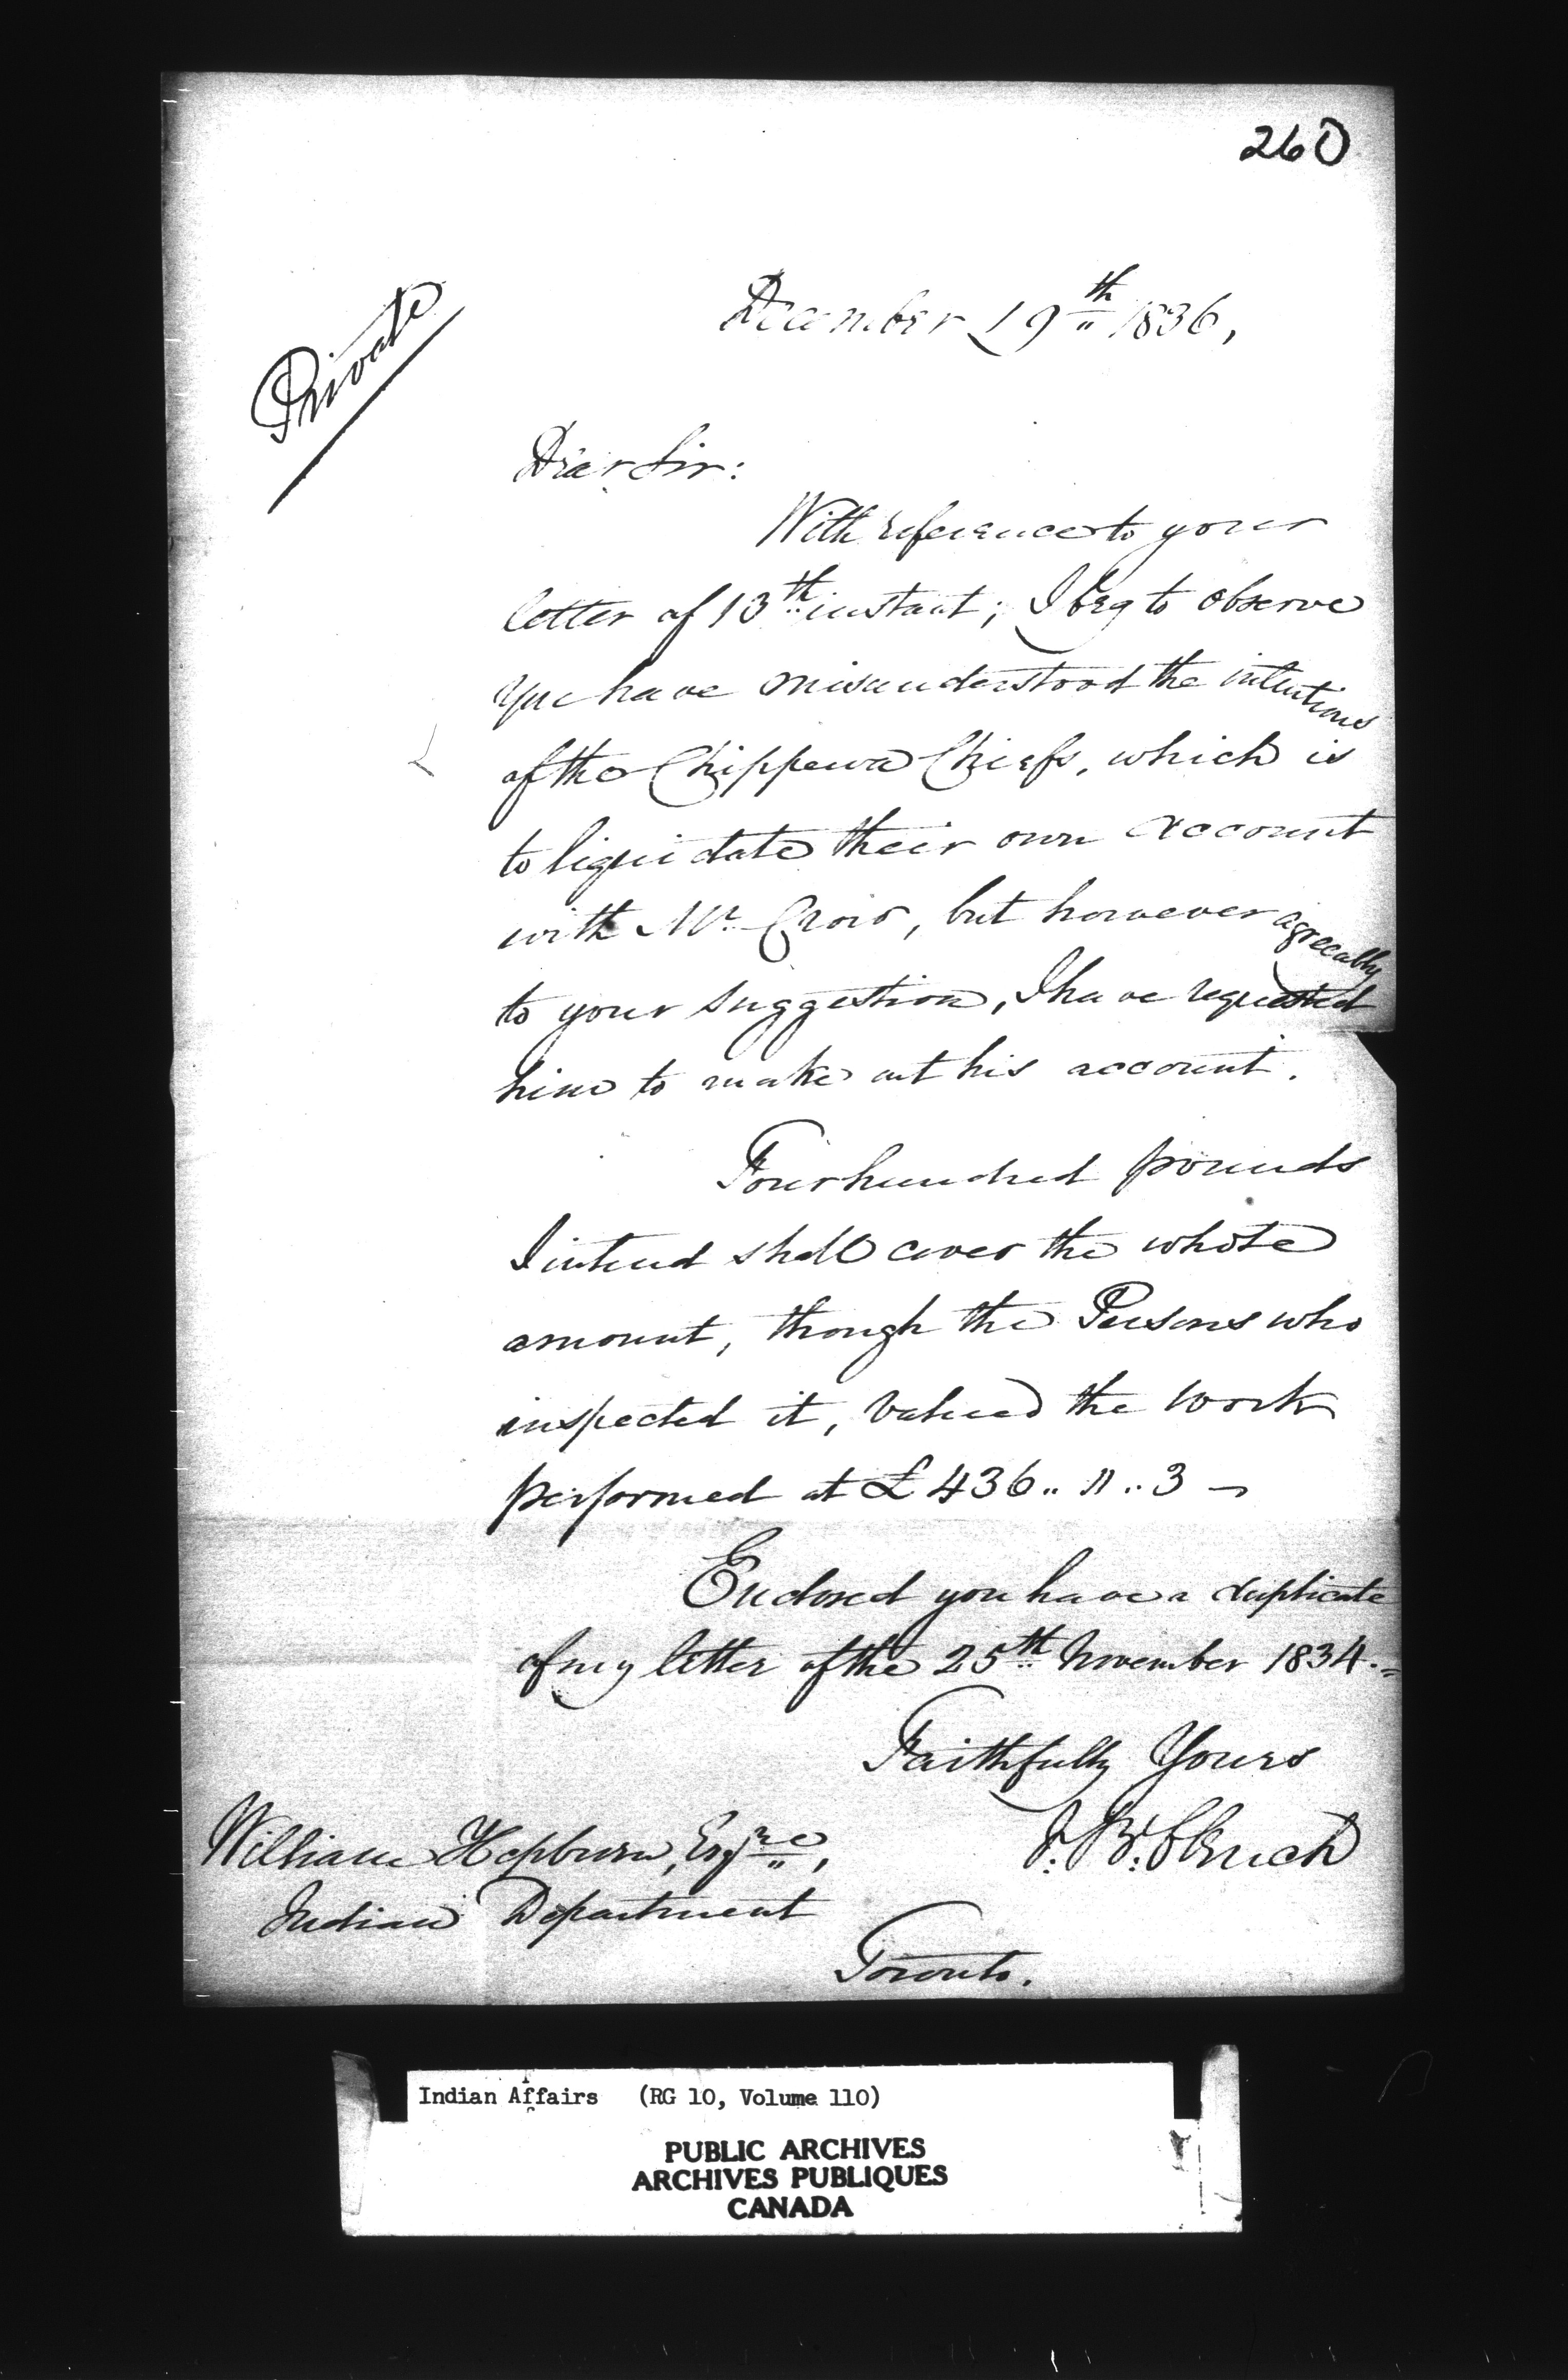 260
Private
December 19th 1836,
Dear Sir:
With reference to your
letter of 13th instant; I beg to observe
you have misunderstood the intentions
of the Chippewa Chiefs, which is
to liquidate their own account
with Mr. Crow, but however agreeably
to your suggestion, I have requested
him to make out his account.
Four hundred pounds
I intend shall cover the whole
amount, though the Persons who
inspected it, valued the work
performed at £436.. 11 ..3 —
Enclosed you have a duplicate
of my letter of the 25th November 1834.=
Faithfully Yours
J. B. Clench
William Hepburn, Esqre,
Indian Department
Toronto.
Indian Affairs (RG 10, Volume 110)
PUBLIC ARCHIVES
ARCHIVES PUBLIQUES
CANADA